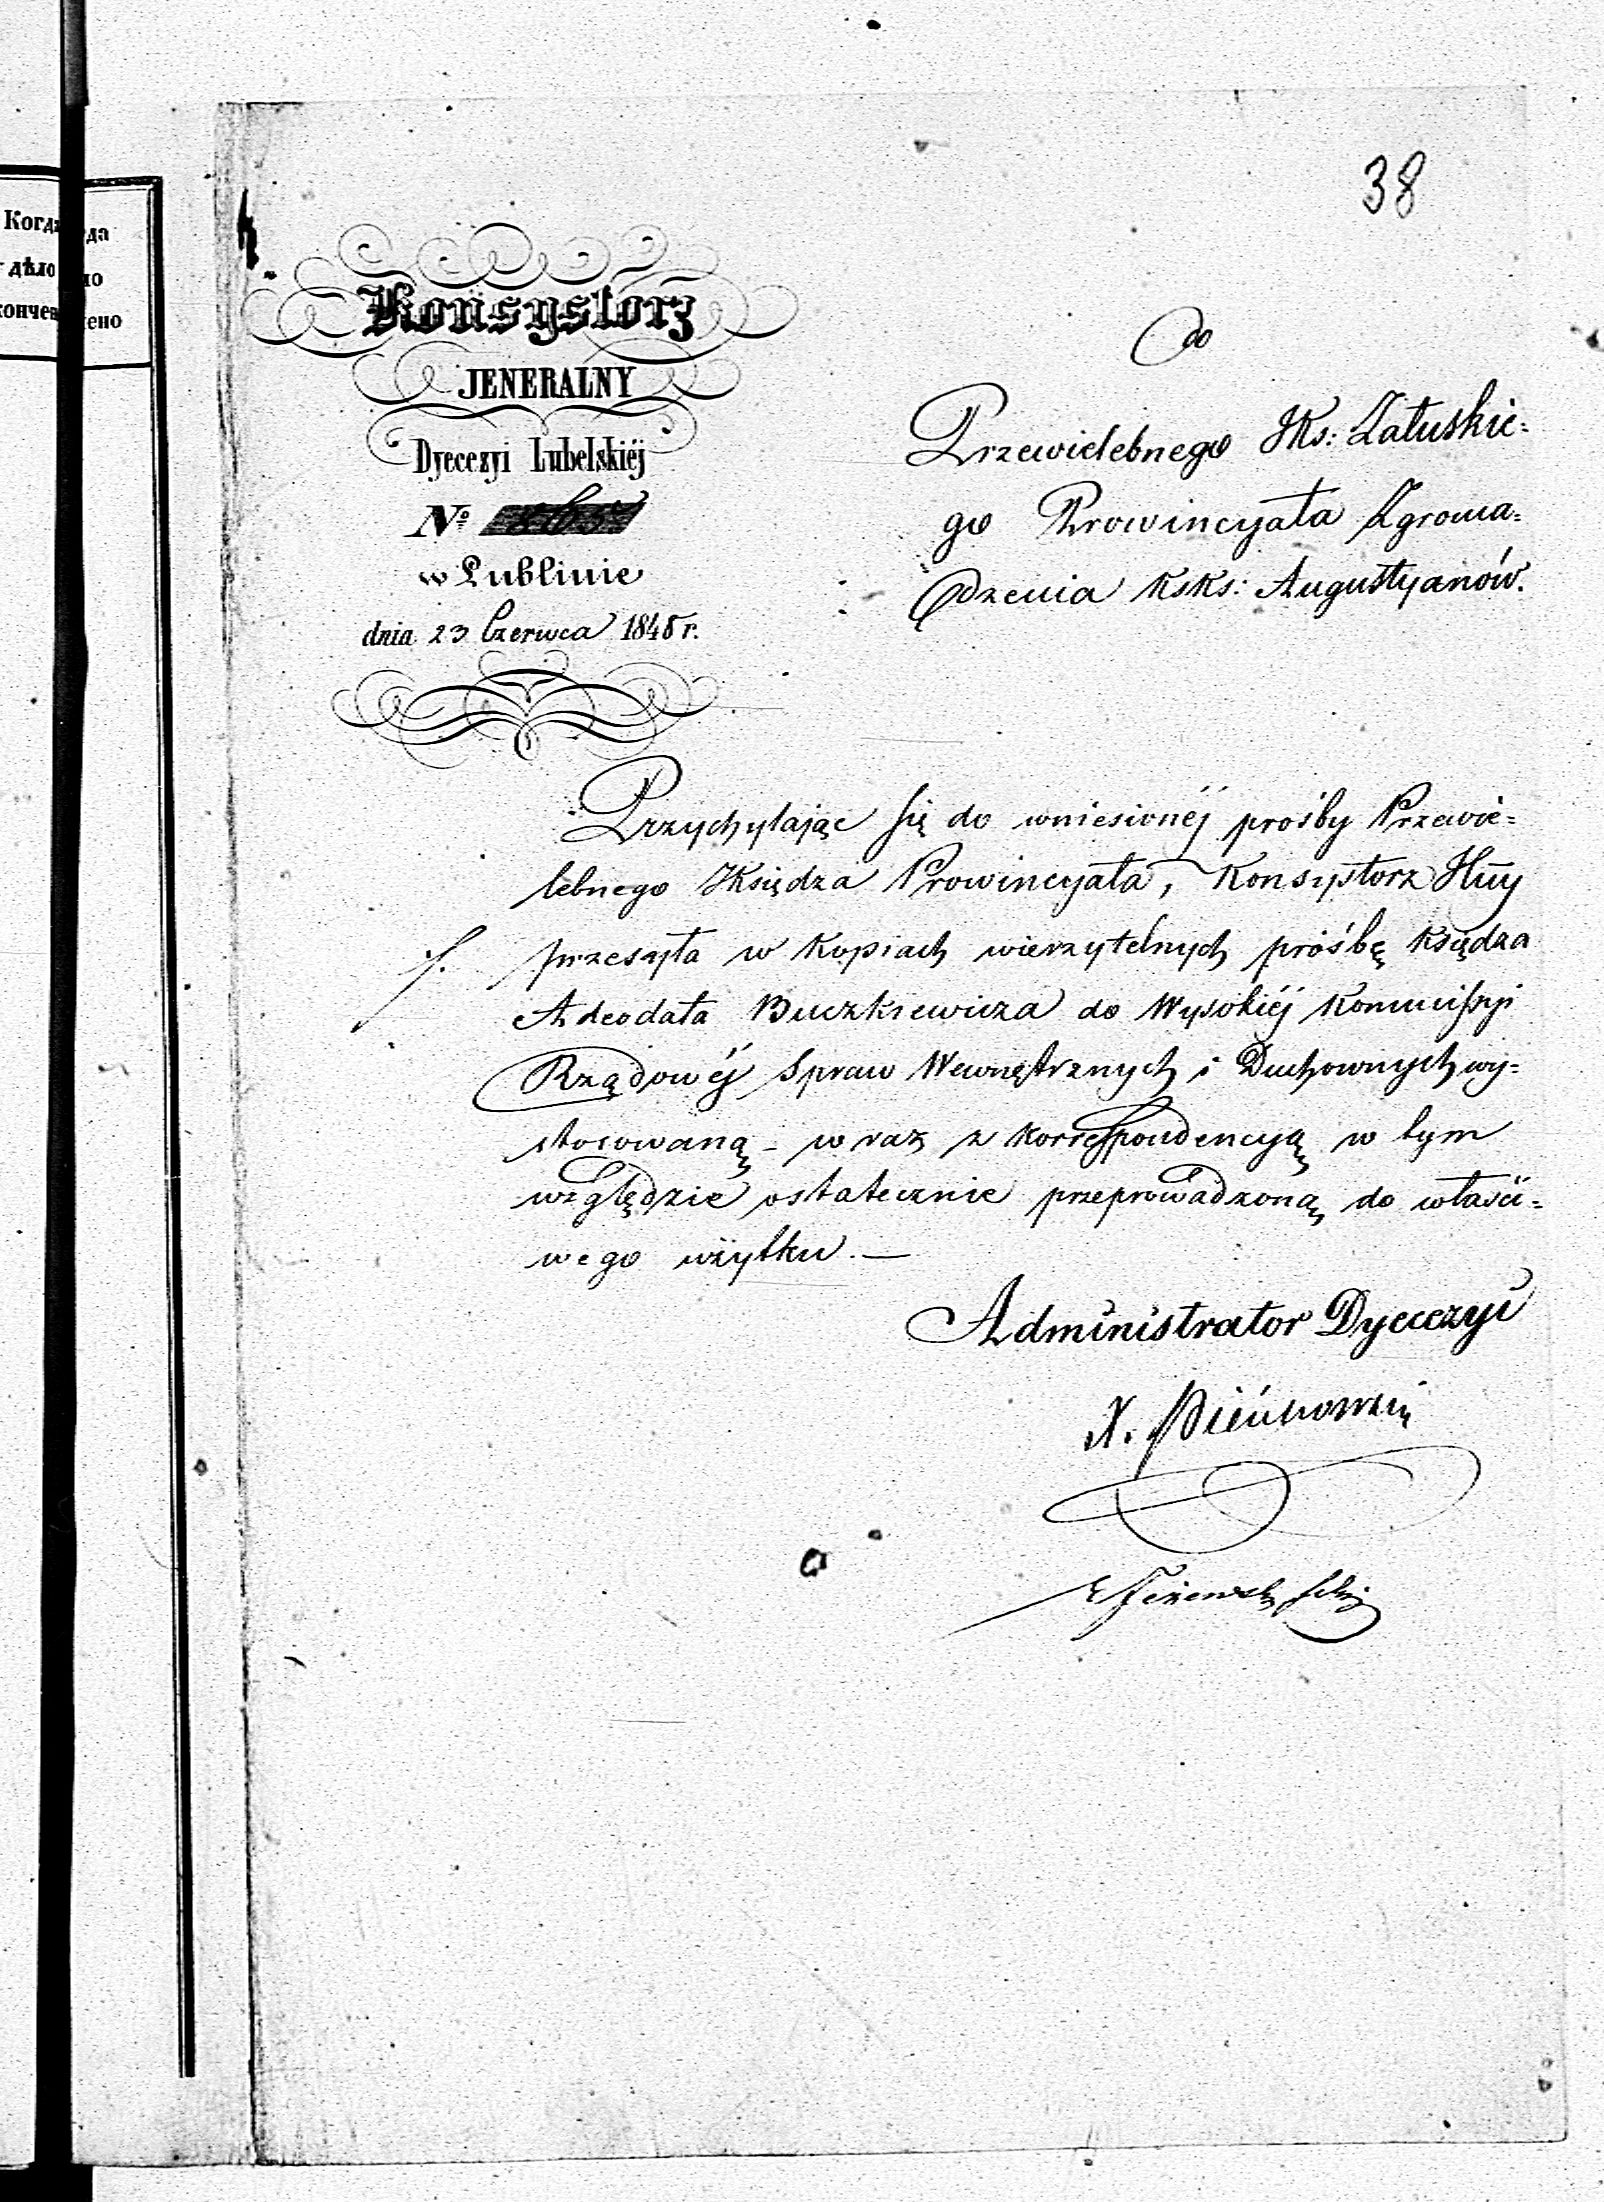 38
Когда
дѣло
кончено
Konsystorz
JENERALNY
Dyecezyi Lubelskiéj
No
w Lublinie
dnia 23 Czerwca 1848 r.
Do
Przewielebnego JKs: Załuskie=
go Prowincyała Zgroma=
dzenia KsKs: Augustyanów.
Przychylając się do wniesionéj prośby Przewie=
lebnego JKsiędza Prowincyała, Konsystorz Jlny
przesyła w Kopiach wierzytelnych prośbę Księdza
Adeodata Buczkiewicza do Wysokiéj Kommissyi
Rządowéj Spraw Wewnętrznych i Duchownych wy=
stosowaną – wraz z korrespondencyą w tym
względzie ostatecznie przeprowadzoną do właści=
wego użytku. —
Administrator Dyecezyi
X. Pieńkowski